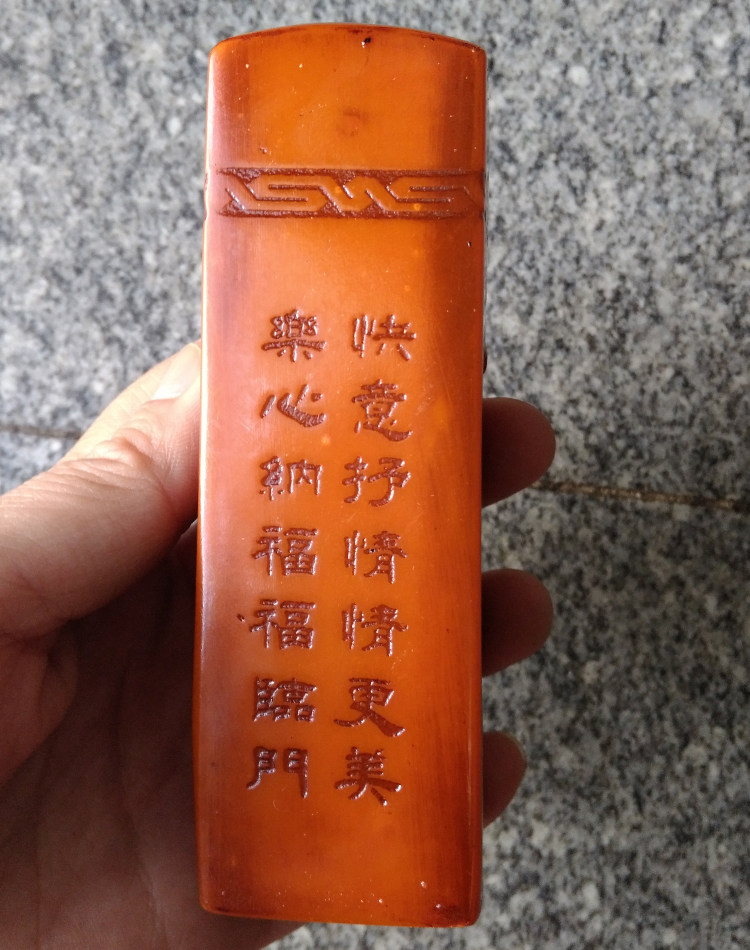 快意抒情情更美
樂心納福福臨門